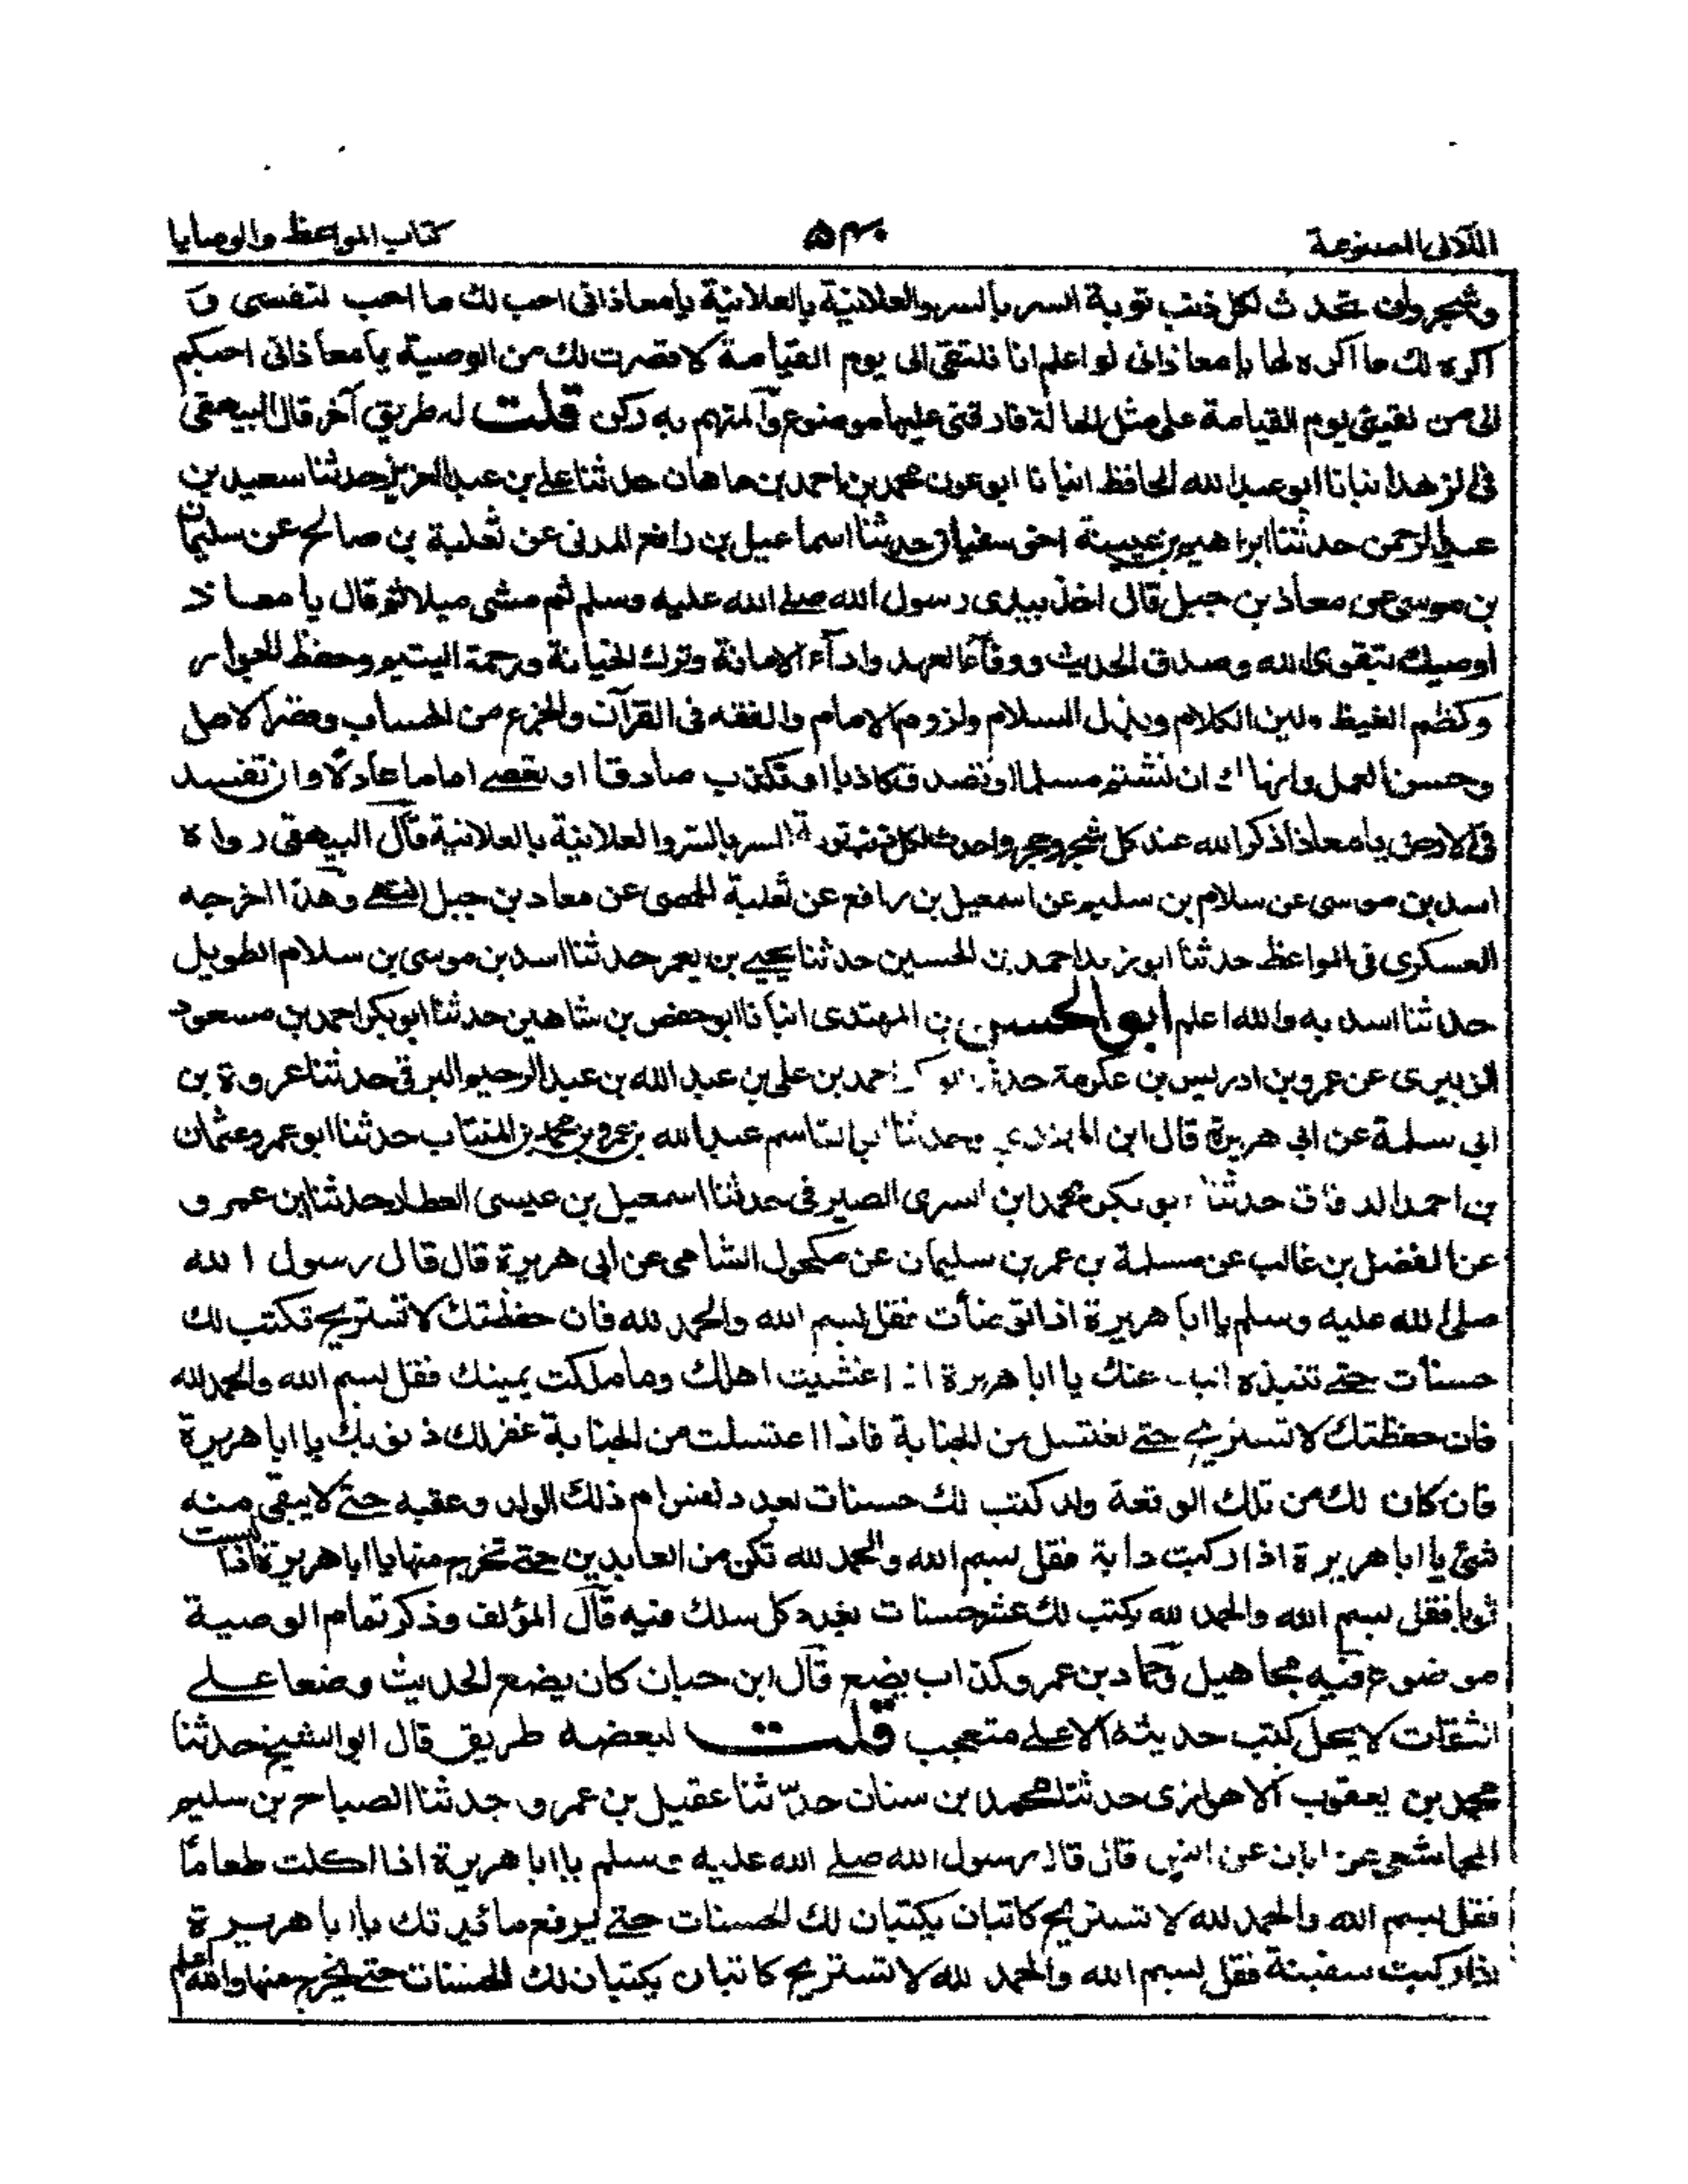 اللآلئ المصنوعة
كتاب المواعظ والوصايا
وشجر وان تحدث لكل ذنب توبة السر بالسر والعلانية بالعلانية يا معاذ اني احب لك ما احب لنفسي و
اكره لك ما اكره لها يا معاذ اني لو اعلم انا نلتقي الى يوم القيامة لا قصرت لك من الوصية يا معاذ اني احبكم
الى من لقيني يوم القيامة على مثل الحالة فارقني عليها موضوع والمتهم به ركن قلت له طريق آخر قال البيهقي
في الزهد انبانا ابو عبد الله الحافظ انبانا ابو عون محمد بن احمد بن ماهان حدثنا علي بن عبد العزيز حدثنا سعيد بن
عبد الرحمن حدثنا ابراهيم بن عيينة اخي سفيان حدثنا اسماعيل بن رافع المدني عن ثعلبة بن صالح عن سليمان
بن موسى عن معاذ بن جبل قال اخذ بيدى رسول الله صلے الله عليه وسلم ثم مشى ميلا ثم قال يا معاذ
اوصيك بتقوى الله وصدق الحديث ووفآء العهد وادآء الامانة وترك الخيانة ورحمة اليتيم وحفظ الجوار
وكظم الغيظ ولين الكلام وبذل السلام ولزوم الامام والفقه في القرآن والجزع من الحساب وقصر الامل
وحسن العمل وانهاك ان تشتم مسلما او تصدق كاذبا او تكذب صادقا او تعصے اماما عادلا وان تفسد
في الارض يا معاذ اذكر الله عند كل شجر وحجر واحدث لكل ذنب توبة السر بالسر والعلانية بالعلانية قال البيهقي رواه
اسد بن موسى عن سلام بن سليم عن اسمعيل بن رافع عن ثعلبة الحمصي عن معاذ بن جبل انتهى وهذا اخرجه
العسكرى في المواعظ حدثنا ابو زيد احمد بن الحسين حدثنا يحيے بن يعمر حدثنا اسد بن موسى بن سلام الطويل
حدثنا اسد به والله اعلم ابو الحسين بن المهتدى انبأنا ابو حفص بن شاهين حدثنا ابو بكر احمد بن مسعود
الزبيرى عن عمرو بن ادريس بن عكرمة حدثنا ابو بكر احمد بن علي بن عبد الله بن عبد الرحيم البرقي حدثنا عروة بن
ابي سلمة عن ابي هريرة قال ابن المهتدي وحدثنا ابو القاسم عبد الله بن عمرو بن محمد بن المنتاب حدثنا ابو عمرو عثمان
بن احمد الدقاق حدثنا ابو بكر محمد ابن السرى الصيرفي حدثنا اسمعيل بن عيسى العطار حدثنا ابن عمرو
عن الفضل بن غالب عن مسلمة بن عمر بن سليمان عن مكحول الشامي عن ابي هريرة قال قال رسول الله
صلى الله عليه وسلم يا ابا هريرة اذا توضأت فقل بسم الله والحمد لله فان حفظتك لا تستريح تكتب لك
حسنات حتے تنبذه عنك يا ابا هريرة اذا غشيت اهلك وما ملكت يمينك فقل بسم الله والحمد لله
فان حفظتك لا تستريح حتے تغتسل من الجنابة فاذا اغتسلت من الجنابة غفر لك ذنوبك يا ابا هريرة
فان كان لك من تلك الوقعة ولد كتب لك حسنات بعدد نفس ام ذلك الولد وعقبه حتے لا يبقى منه
شئ يا ابا هريرة اذا ركبت دابة فقل بسم الله والحمد لله تكن من العابدين حتے تخرج منها يا ابا هريرة اذا لبست
ثوبا فقل بسم الله والحمد لله يكتب لك عشر حسنات بعدد كل سلك فيه قال المؤلف وذكر تمام الوصية
موضوع فيه مجاهيل وحماد بن عمرو كذاب يضع قال ابن حبان كان يضع الحديث وضعا علے
الثقات لا يحل كتب حديثه الا علے متعجب قلت لبعضه طريق قال ابو الشيخ حدثنا
محمد بن يعقوب الاهوازى حدثنا محمد بن سنان حدثنا عقيل بن عمرو حدثنا الصباح بن سليم
المجاشعي عن ابان عن انس قال قال رسول الله صلے الله عليه وسلم يا ابا هريرة اذا اكلت طعاما
فقل بسم الله والحمد لله لا تستريح كاتبان يكتبان لك الحسنات حتے يرفع مائدتك يا ابا هريرة
اذا ركبت سفينة فقل بسم الله والحمد لله لا تستريح كاتبان يكتبان لك الحسنات حتے تخرج منها والله اعلم